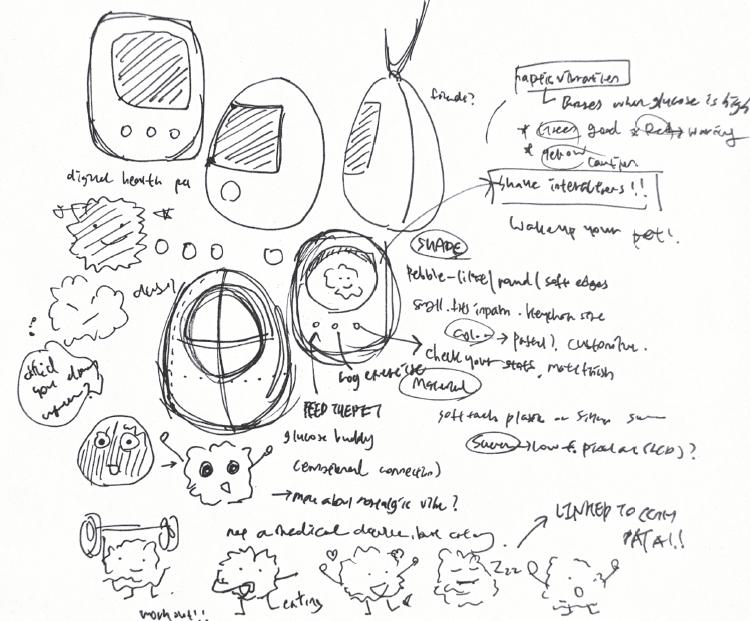 haptic vibration
Buzzes when glucose is high
friends?
* Green good * Red warning
* Yellow caution
digital health pet
shake interactions!!
Wake up your pet!
SHAPE
Pebble-like / round / soft edges
small, fits in palm. keychain size
Color → pastel? customize.
check your stats, matte finish
log exercise
Material
FEED THE PET
soft touch plastic or
glucose buddy
Screen → low-f. pixel art (LCD)?
(emotional connection)
→ more about nostalgic vibe?
not a medical device, but
→ LINKED TO CGM
DATA!!
Zzz
workout!!
eating